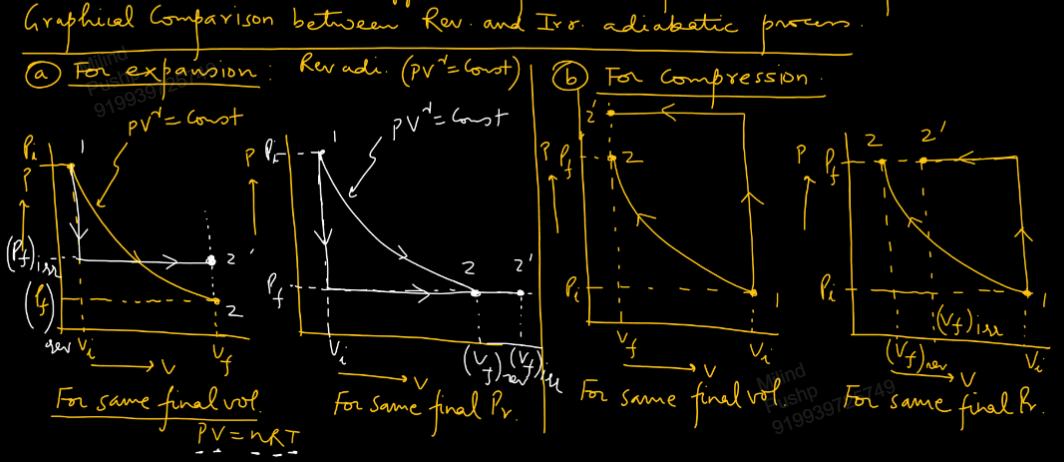 Graphical Comparison between Rev. and Irr. adiabatic process.
(a) For expansion :
Rev adi. (PV^γ = Const)
(b) For Compression.
PV^γ = Const
Pi
1
P
(Pf)irr
2'
(Pf)rev
2
Vi
Vf
V
For same final vol.
PV = nRT
PV^γ = Const
P
Pi
1
Pf
2
2'
Vi
(Vf)rev
(Vf)irr
V
For same final Pr.
2'
P
Pf
2
Pi
1
Vf
Vi
V
For same final vol.
P
Pf
2
2'
Pi
1
(Vf)irr
(Vf)rev
Vi
V
For same final Pr.
Milind
Pushp
Milind
Pushp